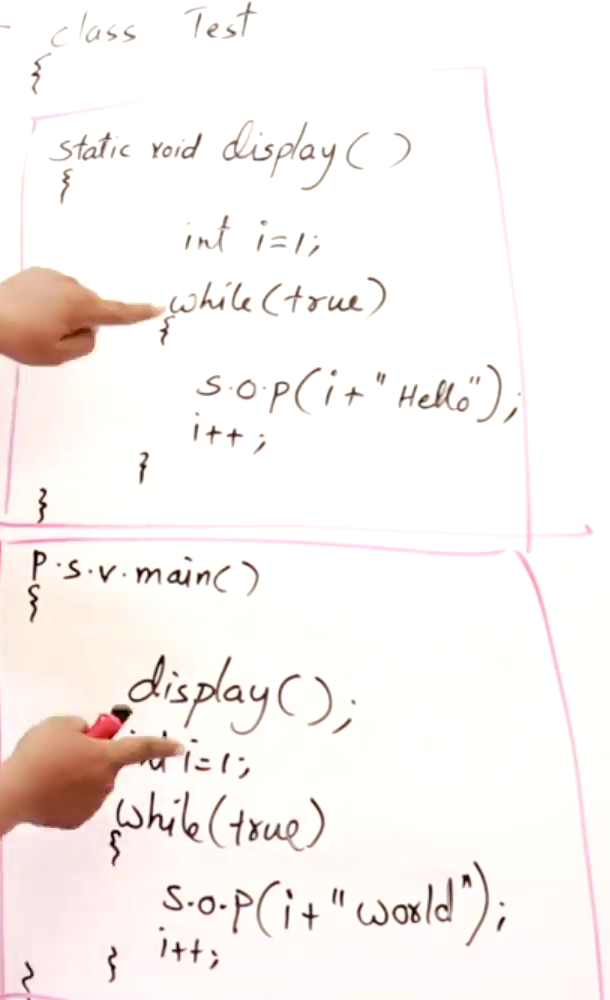 class Test
{
static void display()
{
int i=1;
while(true)
{
S.O.P(i+"Hello");
i++;
}
}
P.S.V.main()
{
display();
int i=1;
while(true)
{
S.O.P(i+"world");
i++;
}
}